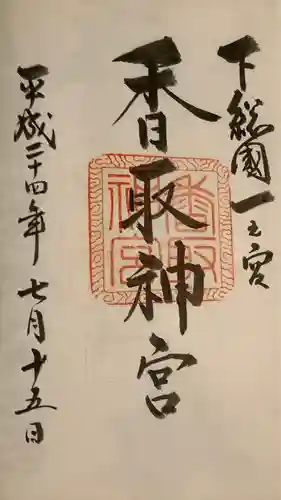 下総國一之宮
香取神宮
平成二十四年七月十五日
香取神宮